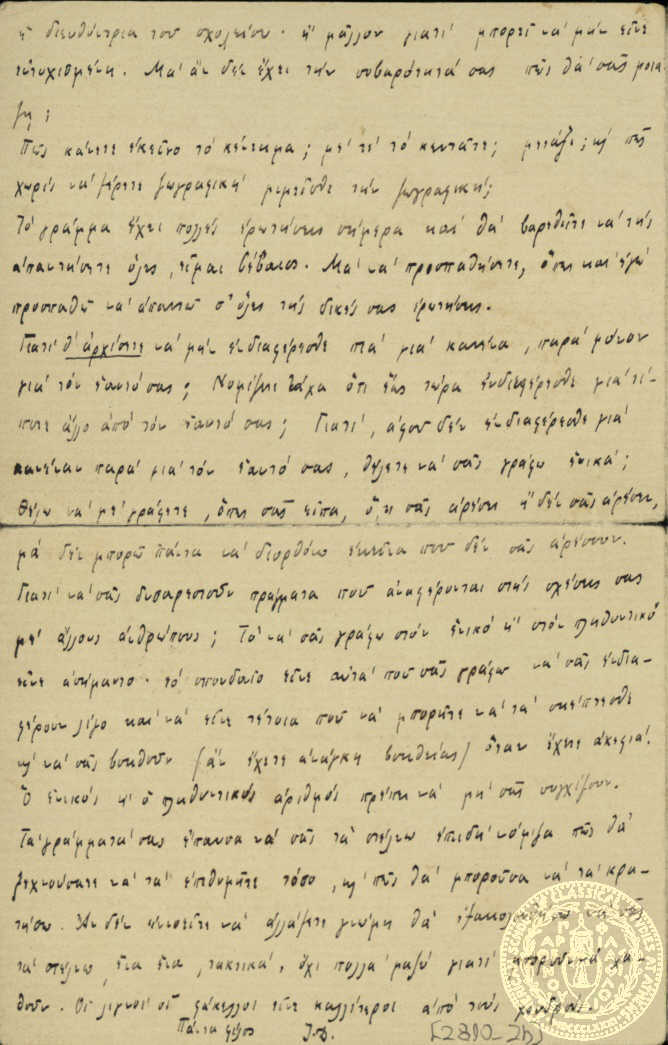 ἡ διευθύντρια τοῦ σχολείου. ἤ μᾶλλον γιατί μπορεῖ νά μήν εἶνε
εὐτυχισμένη. Μά ἄν δέν ἔχει τήν σοβαρότητά σας πῶς θά σᾶς μοιά-
ζῃ;
Πῶς κάνετε ἐκεῖνο τό κέντημα; μέ τί τό κεντᾶτε; μετάξι; κι πῶς
χωρίς νά ξέρετε ζωγραφική μιμεῖσθε τήν ζωγραφική;
Τό γράμμα ἔχει πολλές ἐρωτήσεις σήμερα καί θά βαρεθῆτε νά τῆς
ἀπαντήσετε ὅλες, εἶμαι βέβαιος. Μά νά προσπαθήσετε, ὅπως καί ἐγώ
προσπαθῶ νά ἀπαντῶ σ' ὅλες τῆς δικές σας ἐρωτήσεις.
Γιατί θ' ἀρχίσετε νά μήν ἐνδιαφέρεσθε πιά γιά κανένα, παρά μόνον
γιά τόν ἑαυτό σας; Νομίζετε τάχα ὅτι ἕως τώρα ἐνδιεφέρεσθε γιά τί-
ποτε ἄλλο ἀπό τόν ἑαυτό σας; Γιατί, ἀφοῦ δέν ἐνδιαφέρεσθε γιά
κανέναν παρά γιά τόν ἑαυτό σας, θέλετε νά σᾶς γράφω ἑνικά;
Θέλω νά μέ γράφετε, ὅπως σᾶς εἶπα, ὅ,τι σᾶς ἀρέσει ἤ δέν σᾶς ἀρέσει,
μά δέν μπορῶ πάντα νά διορθώνω ἐκεῖνα πού δέν σᾶς ἀρέσουν.
Γιατί νά σᾶς δυσαρεστοῦν πράγματα πού ἀναφέρονται στῆς σχέσεις σας
μέ ἄλλους ἀνθρώπους; Τό νά σᾶς γράφω στόν ἑνικό ἤ στόν πληθυντικό
εἶνε ἀσήμαντο. τό σπουδαῖο εἶνε αὐτά πού σᾶς γράφω νά σᾶς ἐνδια-
φέρουν λίγο καί νά εἶνε τέτοια πού νά μπορῆτε νά τά σκέπτεσθε
κι νά σᾶς βοηθοῦν (ἄν ἔχετε ἀνάγκη βοηθείας) ὅταν ἔχετε ἀκεφιά.
Ὁ ἑνικός κι ὁ πληθυντικός ἀριθμός πρέπει νά μή σᾶς συγχίζουν.
Τά γράμματά σας ἔπαυσα νά σᾶς τά στέλνω ἐπειδή νόμιζα πῶς θά
ξεχνούσατε νά τά ἐπιθυμῆτε τόσο, κι πῶς θά μποροῦσα νά τά κρα-
τήσω. Ἄν δέν ἐννοεῖτε νά ἀλλάξετε γνώμη θά ἐξακολουθήσω νά σᾶς
τά στέλνω, ἕνα ἕνα, τακτικά, ὄχι πολλά μαζύ γιατί μποροῦν νά χα-
θοῦν. Οἱ λιγνοί οἱ φάκελλοι εἶνε καλλίτεροι ἀπό τούς χονδρούς.
Πάντα φίλος Ι.Δ. [2890-2b]